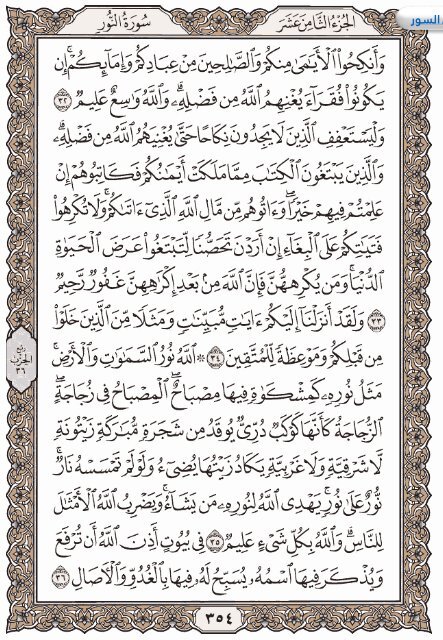 السور
الجزء الثامن عشر
سورة النور
وَأَنكِحُوا۟ ٱلْأَيَـٰمَىٰ مِنكُمْ وَٱلصَّـٰلِحِينَ مِنْ عِبَادِكُمْ وَإِمَآئِكُمْ ۚ إِن
يَكُونُوا۟ فُقَرَآءَ يُغْنِهِمُ ٱللَّهُ مِن فَضْلِهِۦ ۗ وَٱللَّهُ وَٰسِعٌ عَلِيمٌ ۝٣٢
وَلْيَسْتَعْفِفِ ٱلَّذِينَ لَا يَجِدُونَ نِكَاحًا حَتَّىٰ يُغْنِيَهُمُ ٱللَّهُ مِن فَضْلِهِۦ ۗ
وَٱلَّذِينَ يَبْتَغُونَ ٱلْكِتَـٰبَ مِمَّا مَلَكَتْ أَيْمَـٰنُكُمْ فَكَاتِبُوهُمْ إِنْ
عَلِمْتُمْ فِيهِمْ خَيْرًا ۖ وَءَاتُوهُم مِّن مَّالِ ٱللَّهِ ٱلَّذِىٓ ءَاتَىٰكُمْ ۚ وَلَا تُكْرِهُوا۟
فَتَيَـٰتِكُمْ عَلَى ٱلْبِغَآءِ إِنْ أَرَدْنَ تَحَصُّنًا لِّتَبْتَغُوا۟ عَرَضَ ٱلْحَيَوٰةِ
ٱلدُّنْيَا ۚ وَمَن يُكْرِههُّنَّ فَإِنَّ ٱللَّهَ مِنۢ بَعْدِ إِكْرَٰهِهِنَّ غَفُورٌ رَّحِيمٌ
۝٣٣ وَلَقَدْ أَنزَلْنَآ إِلَيْكُمْ ءَايَـٰتٍ مُّبَيِّنَـٰتٍ وَمَثَلًا مِّنَ ٱلَّذِينَ خَلَوْا۟
مِن قَبْلِكُمْ وَمَوْعِظَةً لِّلْمُتَّقِينَ ۝٣٤ ۞ ٱللَّهُ نُورُ ٱلسَّمَـٰوَٰتِ وَٱلْأَرْضِ ۚ
مَثَلُ نُورِهِۦ كَمِشْكَوٰةٍ فِيهَا مِصْبَاحٌ ۖ ٱلْمِصْبَاحُ فِى زُجَاجَةٍ ۖ
ٱلزُّجَاجَةُ كَأَنَّهَا كَوْكَبٌ دُرِّىٌّ يُوقَدُ مِن شَجَرَةٍ مُّبَـٰرَكَةٍ زَيْتُونَةٍ
لَّا شَرْقِيَّةٍ وَلَا غَرْبِيَّةٍ يَكَادُ زَيْتُهَا يُضِىٓءُ وَلَوْ لَمْ تَمْسَسْهُ نَارٌ ۚ
نُّورٌ عَلَىٰ نُورٍ ۗ يَهْدِى ٱللَّهُ لِنُورِهِۦ مَن يَشَآءُ ۚ وَيَضْرِبُ ٱللَّهُ ٱلْأَمْثَـٰلَ
لِلنَّاسِ ۗ وَٱللَّهُ بِكُلِّ شَىْءٍ عَلِيمٌ ۝٣٥ فِى بُيُوتٍ أَذِنَ ٱللَّهُ أَن تُرْفَعَ
وَيُذْكَرَ فِيهَا ٱسْمُهُۥ يُسَبِّحُ لَهُۥ فِيهَا بِٱلْغُدُوِّ وَٱلْـَٔاصَالِ ۝٣٦
ربع
الحزب
٣٦
٣٥٤